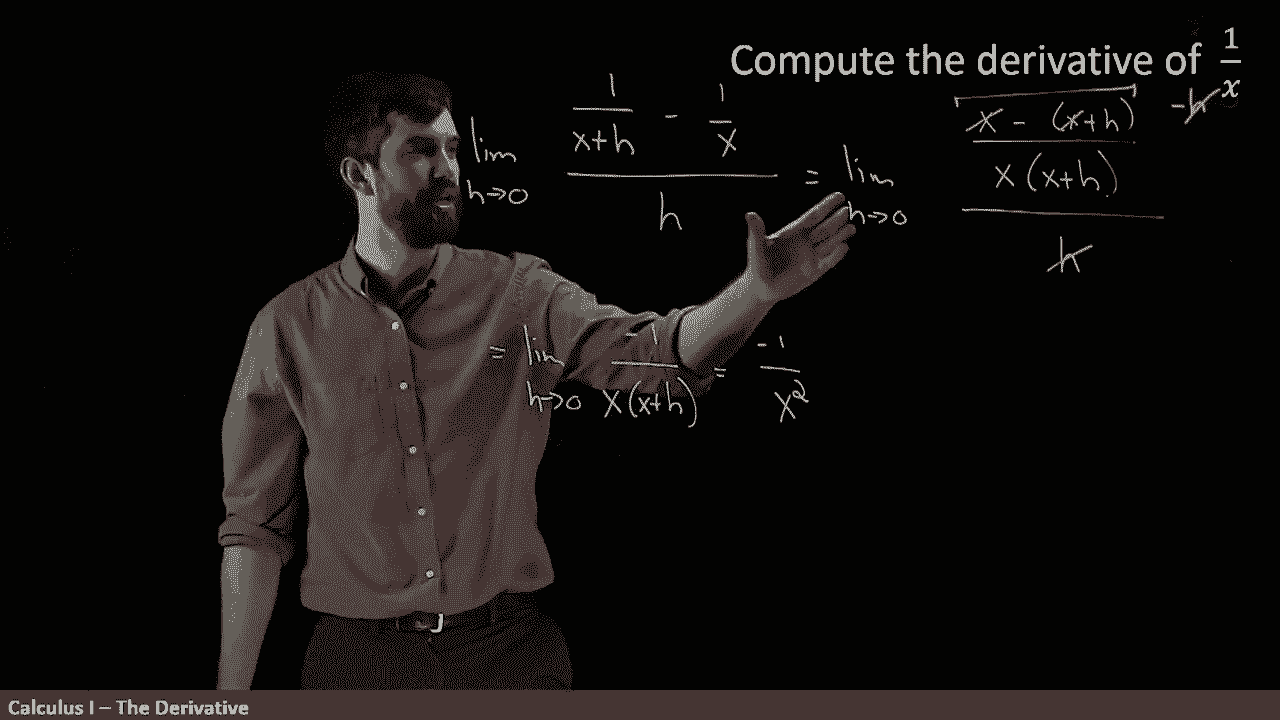 Compute the derivative of 1/x
lim h→0 (1/(x+h) - 1/x)/h = lim h→0 ((x - (x+h))/(x(x+h)))/h -h
= lim h→0 -1/(x(x+h)) = -1/x²
Calculus I – The Derivative